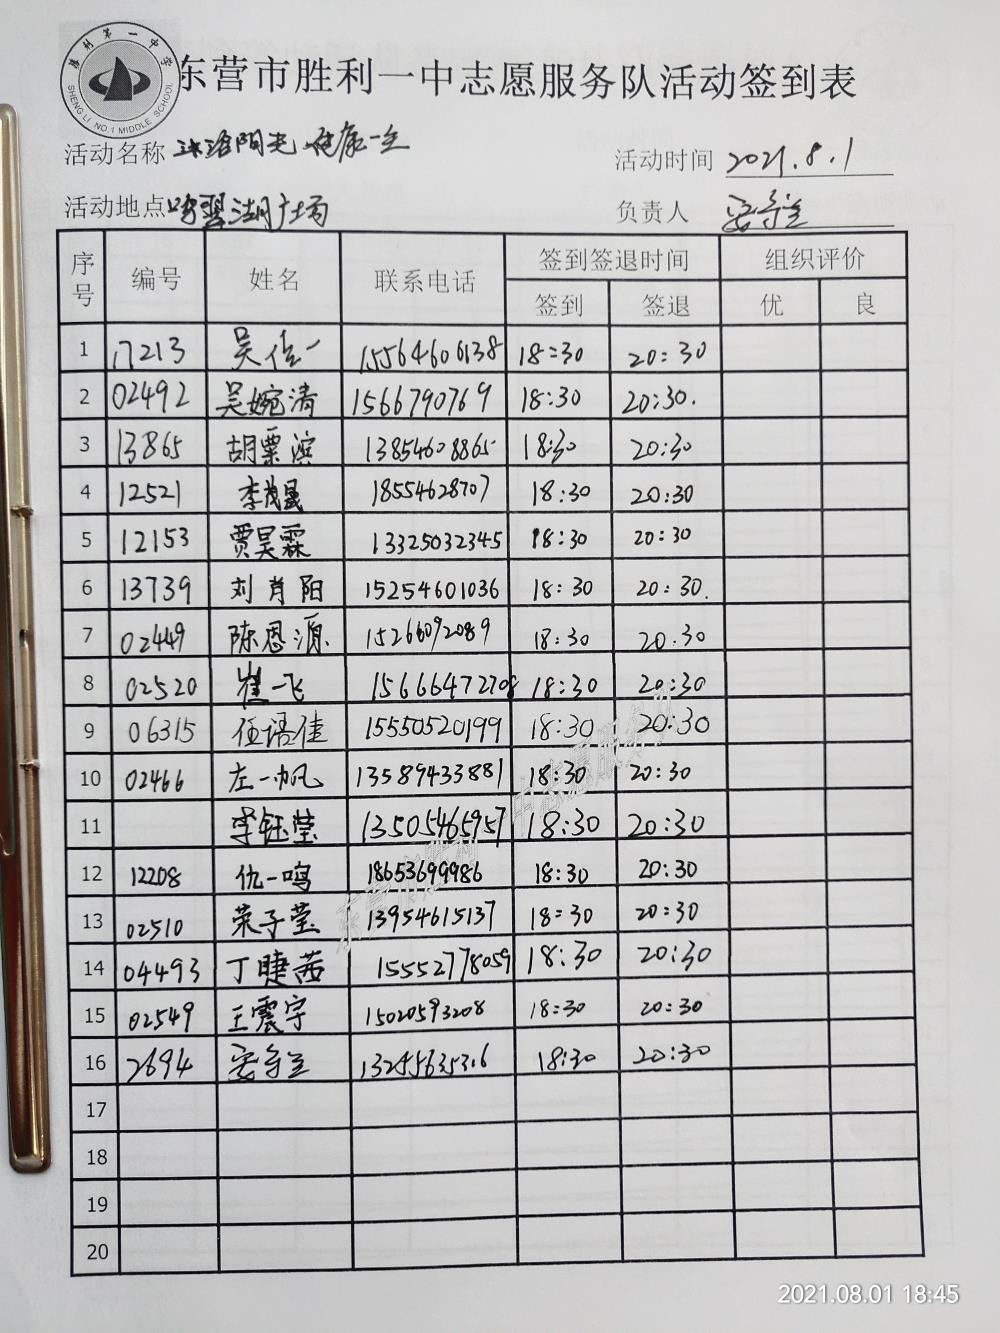 胜利第一中学
SHENG LI NO.1 MIDDLE SCHOOL
东营市胜利一中志愿服务队活动签到表
活动名称 沐浴阳光 健康一生 活动时间 2021.8.1
活动地点 湖广场 负责人 安子兰
序号 编号 姓名 联系电话 签到签退时间 组织评价
签到 签退 优 良
1 17213 吴佐一 15564606138 18:30 20:30
2 02492 吴婉清 1566790769 18:30 20:30.
3 13865 胡栗滨 13854608865 18:30 20:30
4 12521 李茂晟 18554628707 18:30 20:30
5 12153 贾昊霖 13325032345 18:30 20:30
6 13739 刘肖阳 15254601036 18:30 20:30.
7 02449 陈恩源 15266092089 18:30 20:30
8 02520 崔一飞 15666472708 18:30 20:30
9 06315 伍语佳 15550520199 18:30 20:30
10 02466 左一帆 13589433881 18:30 20:30
11 李钰莹 13505465957 18:30 20:30
12 12208 仇一鸣 18653699986 18:30 20:30
13 02510 荣子莹 13954615137 18:30 20:30
14 04493 丁睫茜 15552778059 18:30 20:30
15 02549 王震宇 15020593208 18:30 20:30
16 2694 安子兰 13245635316 18:30 20:30
17
18
19
20
东营市胜利一中志愿服务队
2021.08.01 18:45